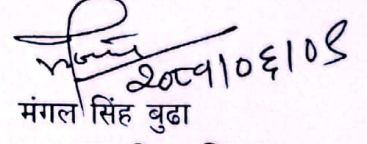 २०८१।०६।०९
मंगल सिंह बुढा